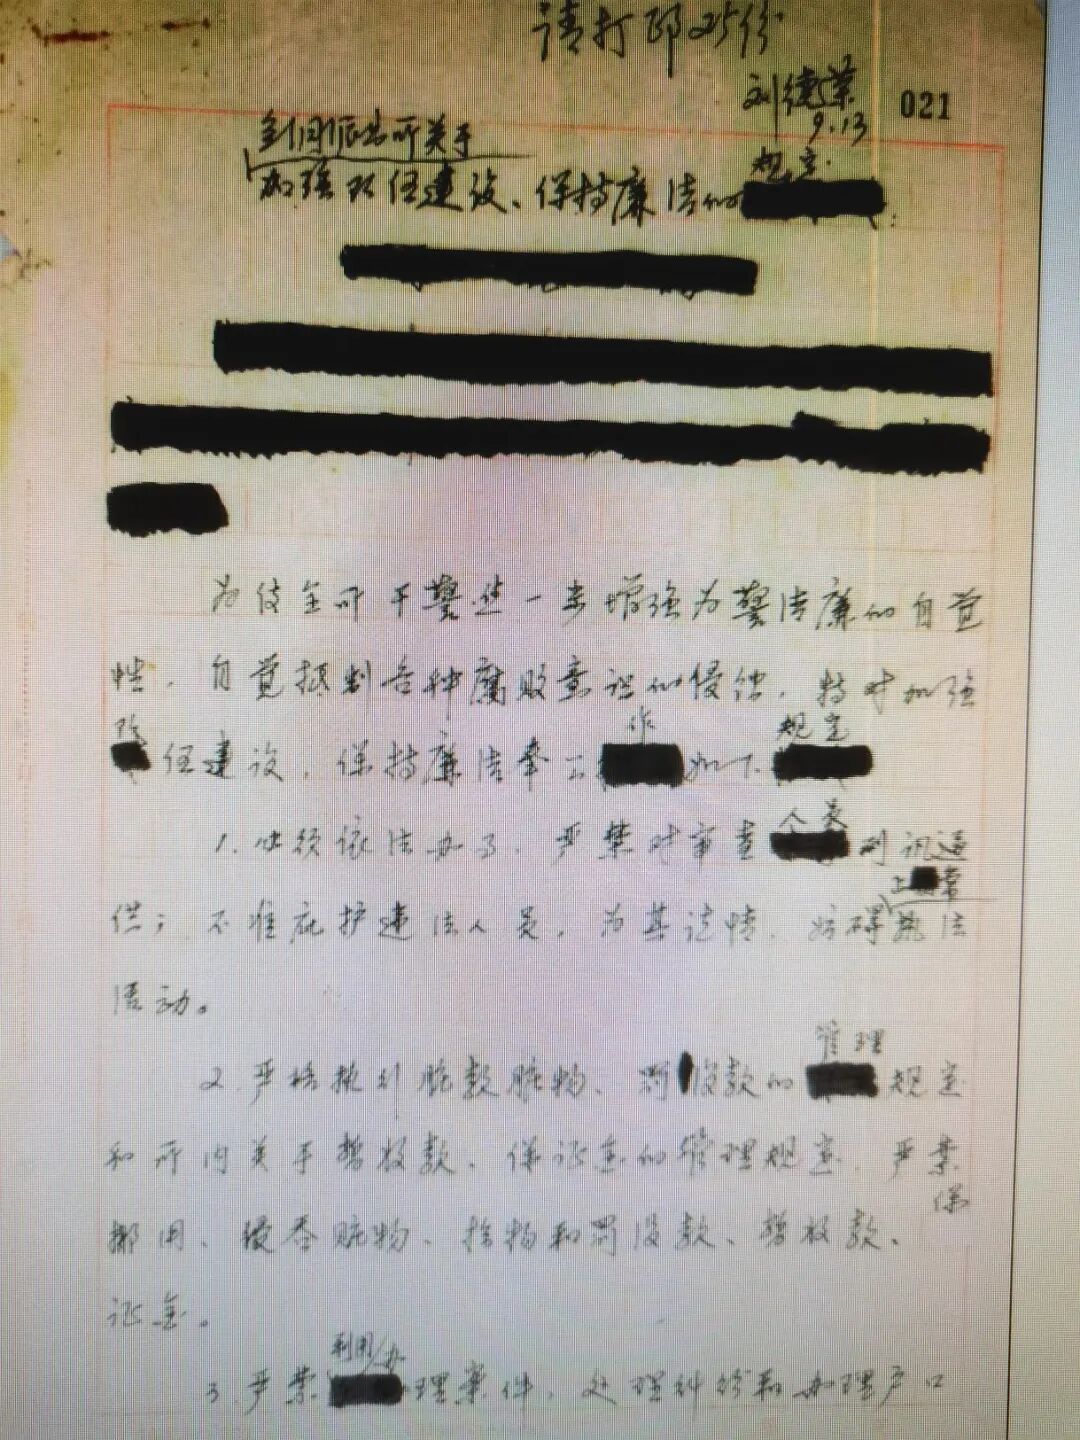 请打印25份
刘德荣
9.13
021
派出所关于
规定
加强队伍建设、保持廉洁的
为使全所干警进一步增强为警清廉的自觉
性,自觉抵制各种腐败意识的侵蚀,特对加强
队
作
规定
伍建设,保持廉洁奉公 如下
人员
1.必须依法办事,严禁对审查 刑讯逼
供;不准庇护违法人员,为其说情,妨碍执法
活动。
管理
2.严格执行赃款赃物、罚没款的 规定
和所内关于暂扣款、保证金的管理规定,严禁
保
挪用、侵吞赃物、拾物和罚没款、暂扣款、
证金。
利用办
3.严禁 理案件,处理纠纷和办理户口